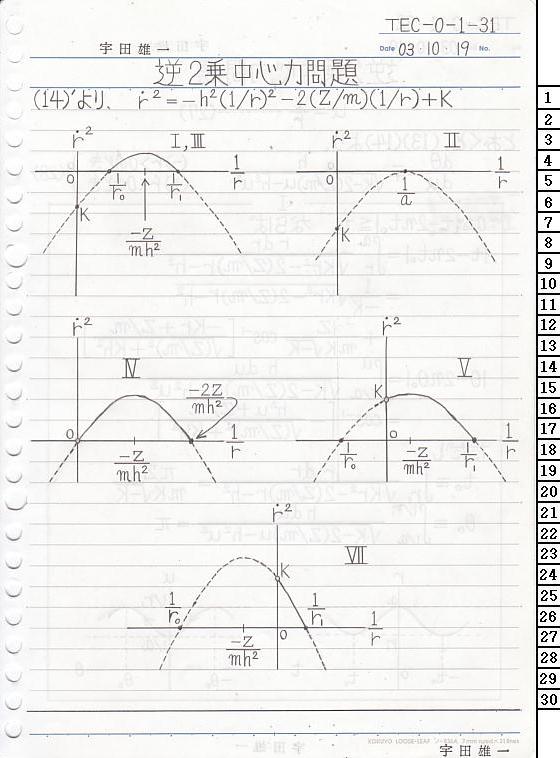 TEC-0-1-31
宇田雄一
Date 03・10・19 No.
逆2乗中心力問題
(14)'より、 ṙ²=-h²(1/r)²-2(Z/m)(1/r)+K
ṙ² I,III 1/r
0 1/r₀ 1/r₁
K
-Z/mh²
ṙ² II
0 1/a 1/r
K
ṙ² IV
-2Z/mh²
0 1/r
-Z/mh²
ṙ² V
K
1/r₀ 0 -Z/mh² 1/r₁ 1/r
ṙ² VII
K
1/r₀ 1/r₁ 1/r
-Z/mh² 0
1
2
3
4
5
6
7
8
9
10
11
12
13
14
15
16
17
18
19
20
21
22
23
24
25
26
27
28
29
30
KOKUYO LOOSE-LEAF
宇田雄一